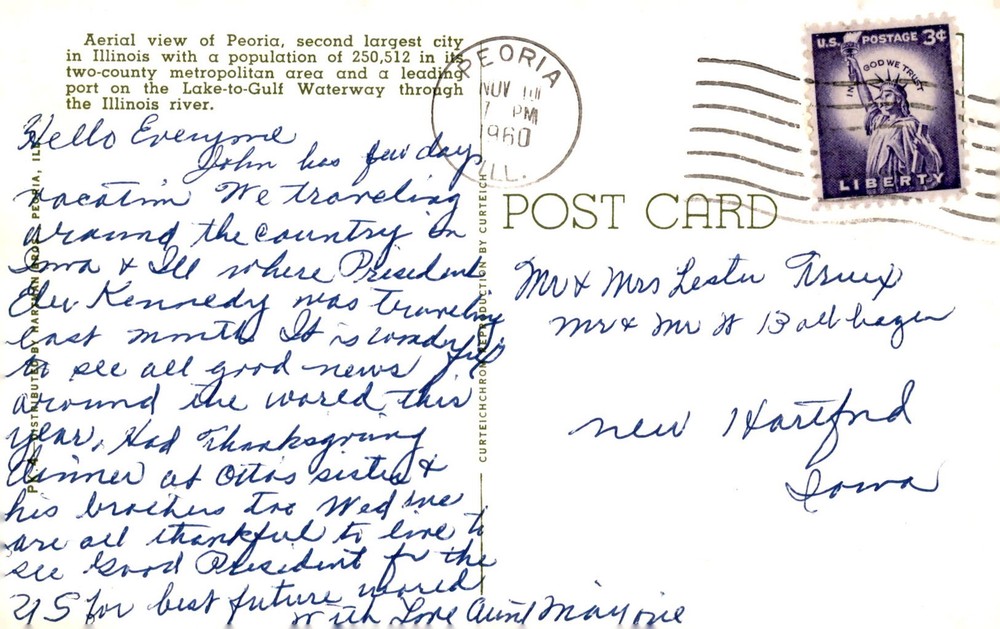 Aerial view of Peoria, second largest city
in Illinois with a population of 250,512 in its
two-county metropolitan area and a leading
port on the Lake-to-Gulf Waterway through
the Illinois river.
Hello Everyone
John has few days
vacation We traveling
around the country in
Iowa & Ill where President
Elev Kennedy was traveling
last month It is wonderful
to see all good news
around the world this
year. Had Thanksgiving
dinner at Ottos sister &
his brothers too Wed
are all thankful to live to
see Good President for the
US for best future world
With Love Aunt Marjorie
PEORIA
NOV
7 PM
1960
ILL.
U.S. POSTAGE 3¢
IN GOD WE TRUST
LIBERTY
POST CARD
Mr & Mrs Lester Truex
Mr & Mr H Ballhagen
New Hartford
Iowa
DISTRIBUTED BY HARTMAN BROS. PEORIA, ILL.
CURTEICHCHROME REPRODUCTION BY CURTEICH